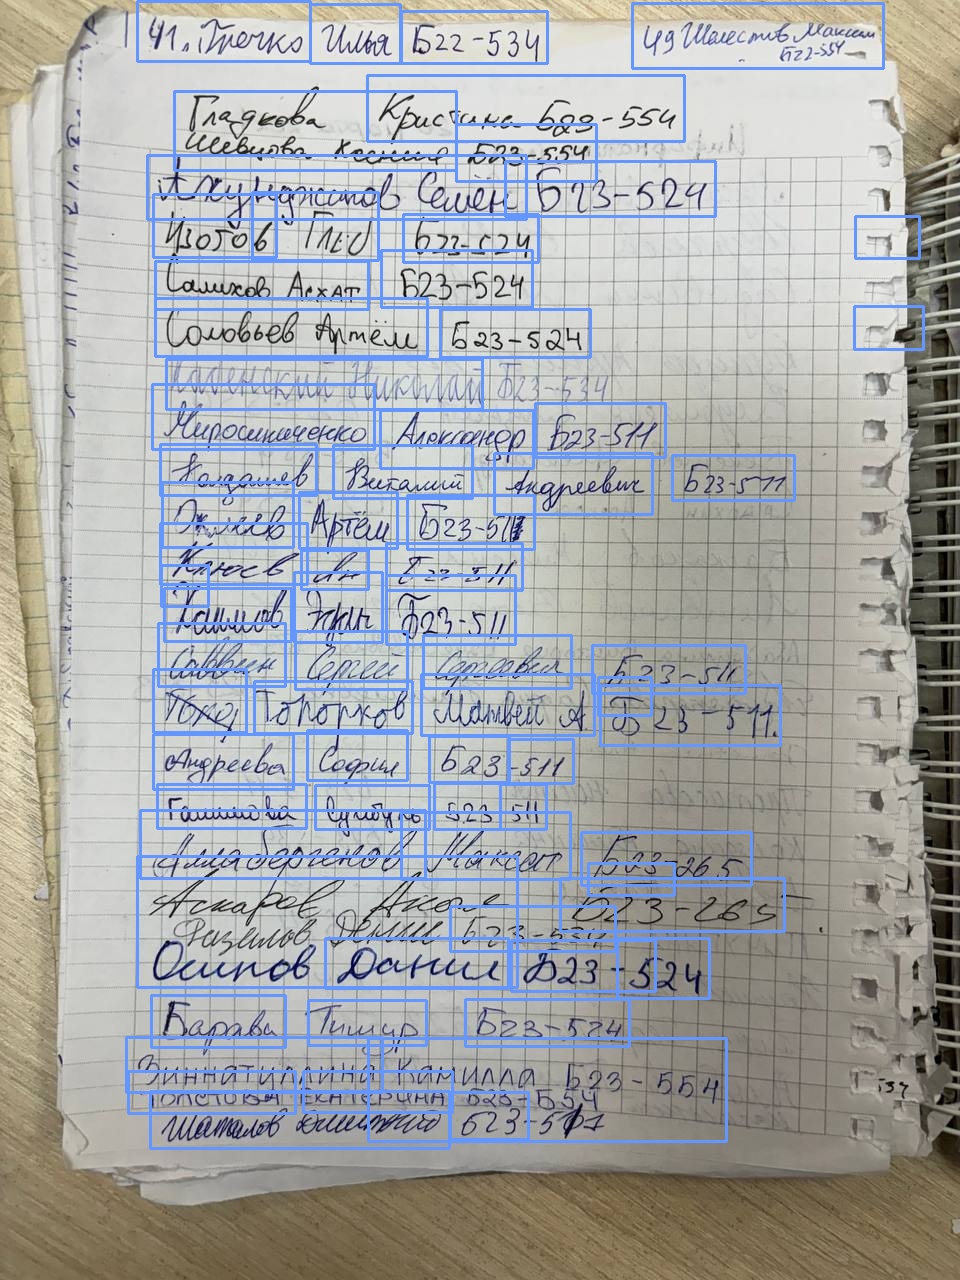 41. Гречко Илья Б22-534
49 Шелестов Максим
Б22-554
Гладкова Кристина Б23-554
Шевцова Ксения Б23-554
Ахунджанов Семён Б23-524
Изотов Глеб Б23-524
Салихов Асхат Б23-524
Соловьев Артём Б23-524
Николай Б23-534
Мирошниченко Александр Б23-511
Виталий Андреевич Б23-511
Артём Б23-511
Клюев Ян Б23-511
Б23-511
Саввин Сергей Б23-511
Топорков Матвей А Б23-511.
Андреева София Б23-511
Галимова Сумбуль Б23 511
Аллабергенов Максат Б23-265
Аскаров Б23-265
Фазылов Денис Б23-534
Осипов Данил Б23-524
Барава Тимур Б23-524
Зиннатуллина Камилла Б23-554
Толстова Екатерина Б23-554
Шаталов Б23-511
534